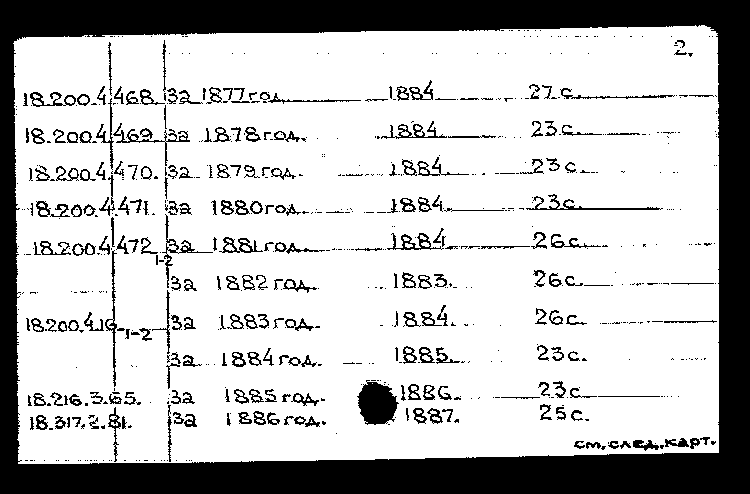 2.
18.200.4.468. За 1877 год. 1884 27 с.
18.200.4.469. За 1878 год. 1884. 23 с.
18.200.4.470. За 1879 год. 1884. 23 с.
18.200.4.471. За 1880 год. 1884. 23 с.
18.200.4.472 За 1881 год. 1884 26 с.
1-2
За 1882 год. 1883. 26 с.
18.200.4.16 1-2 За 1883 год. 1884. 26 с.
За 1884 год. 1885. 23 с.
18.216.3.65. За 1885 год. 1886. 23 с.
18.317.2.81. За 1886 год. 1887. 25 с.
см. след. карт.